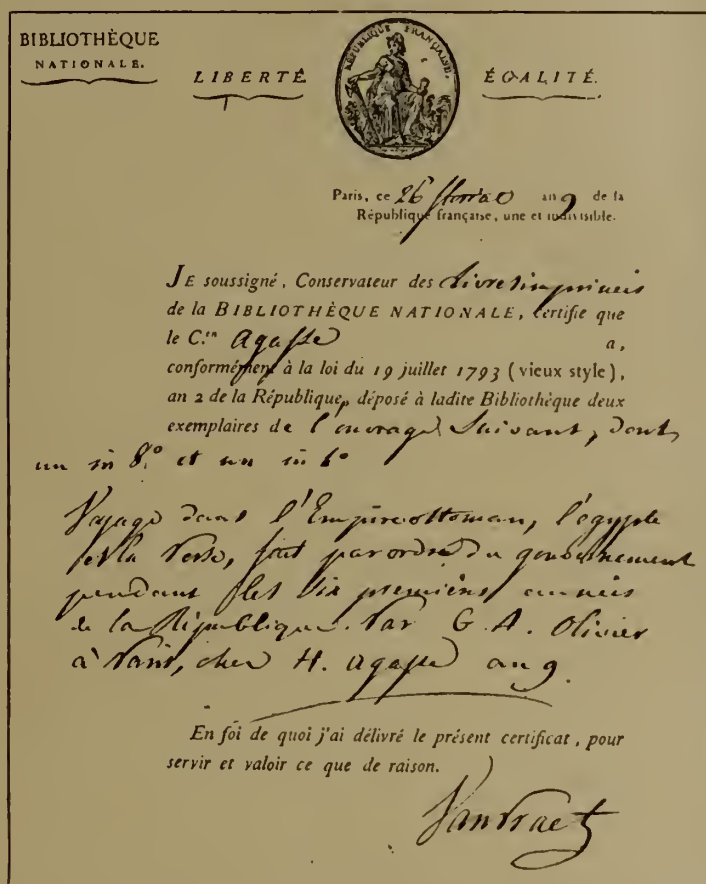 BIBLIOTHÈQUE
NATIONALE.
LIBERTÉ
RÉPUBLIQUE FRANÇAISE.
ÉGALITÉ.
Paris, ce 26 floréal an 9 de la
République française, une et indivisible.
JE soussigné, Conservateur des Livres imprimés
de la BIBLIOTHÈQUE NATIONALE, certifie que
le C.en Agasse a,
conformément à la loi du 19 juillet 1793 (vieux style),
an 2 de la République, déposé à ladite Bibliothèque deux
exemplaires de l'ouvrage suivant, dont
un in 8.º et un in 4º
Voyage dans l'Empire ottoman, l'égypte
et la Perse, fait par ordre du gouvernement
pendant les six premières années
de la République. Par G. A. Olivier
à Paris, chez H. Agasse an 9.
En foi de quoi j'ai délivré le présent certificat, pour
servir et valoir ce que de raison.
VanPraet